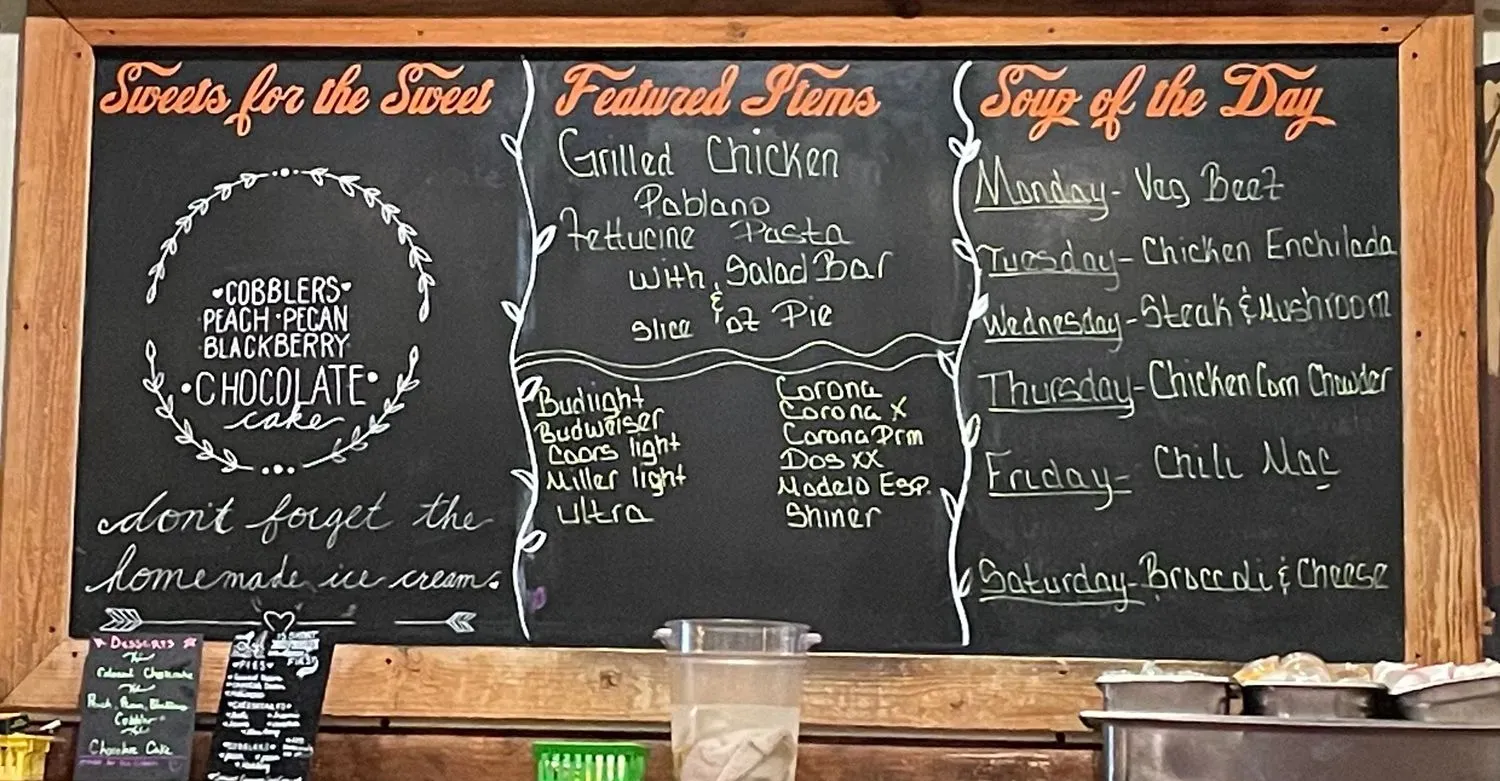 Sweets for the Sweet
•COBBLERS•
PEACH • PECAN
BLACKBERRY
•CHOCOLATE•
cake
don't forget the
homemade ice cream.
Featured Items
Grilled Chicken
Pablano
Fettucine Pasta
with Salad Bar
&
slice of Pie
Budlight
Budweiser
Coors light
Miller light
Ultra
Corona
Corona X
Corona Prm
Dos XX
Modelo Esp.
Shiner
Soup of the Day
Monday- Veg Beef
Tuesday- Chicken Enchilada
Wednesday- Steak & Mushroom
Thursday- Chicken Corn Chowder
Friday- Chili Mac
Saturday- Broccoli & Cheese
DESSERTS
Cobbler
Chocolate Cake
PIES